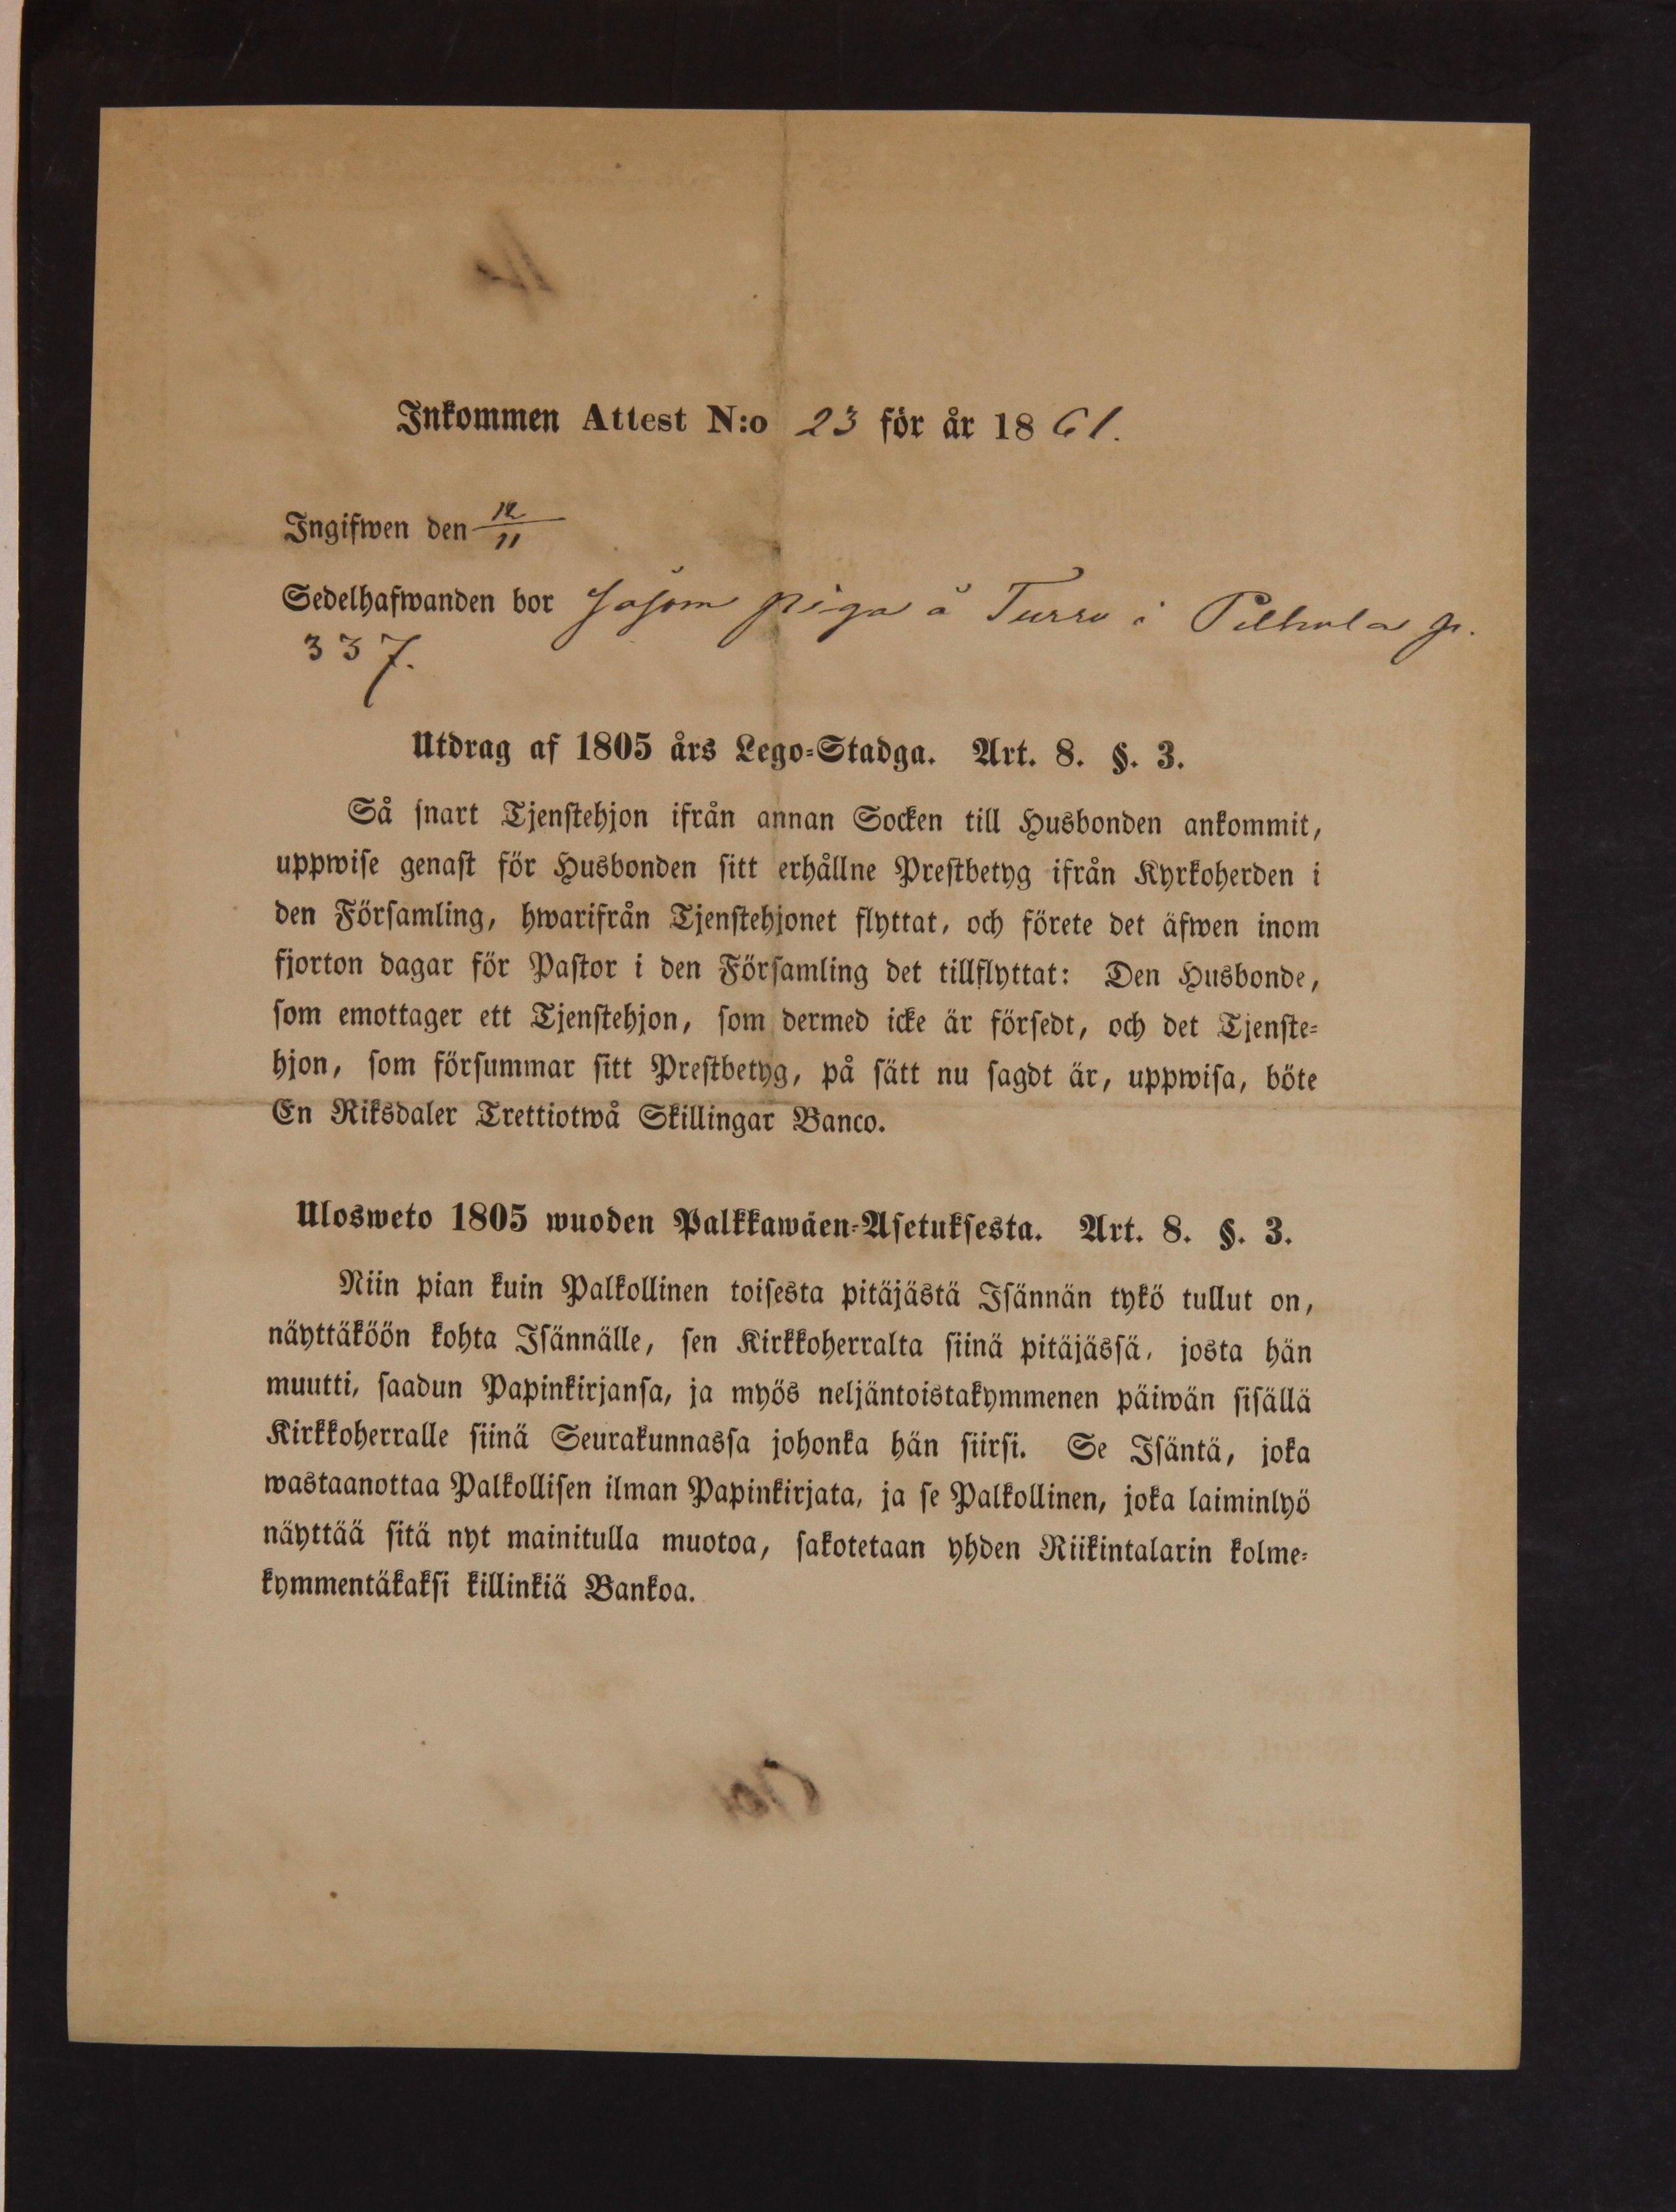 Inkommen Attest N:o 23 för år 1861.
Ingifwen den 12/11
Sedelhafwanden bor såsom piga å Turru i Pilhula p.
337.
Utdrag af 1805 års Lego-Stadga. Art. 8. §. 3.
Så snart Tjenstehjon ifrån annan Socken till Husbonden ankommit,
uppwise genast för Husbonden sitt erhållne Prestbetyg ifrån Kyrkoherden i
den Församling, hwarifrån Tjenstehjonet flyttat, och förete det äfwen inom
fjorton dagar för Pastor i den Församling det tillflyttat: Den Husbonde,
som emottager ett Tjenstehjon, som dermed icke är försedt, och det Tjenste-
hjon, som försummar sitt Prestbetyg, på sätt nu sagdt är, uppwisa, böte
En Riksdaler Trettiotwå Skillingar Banco.
Ulosweto 1805 wuoden Palkkawäen-Asetuksesta. Art. 8. §. 3.
Niin pian kuin Palkollinen toisesta pitäjästä Isännän tykö tullut on,
näyttäköön kohta Isännälle, sen Kirkkoherralta siinä pitäjässä, josta hän
muutti, saadun Papinkirjansa, ja myös neljäntoistakymmenen päiwän sisällä
Kirkkoherralle siinä Seurakunnassa johonka hän siirsi. Se Isäntä, joka
wastaanottaa Palkollisen ilman Papinkirjata, ja se Palkollinen, joka laiminlyö
näyttää sitä nyt mainitulla muotoa, sakotetaan yhden Riikintalarin kolme-
kymmentäkaksi killinkiä Bankoa.